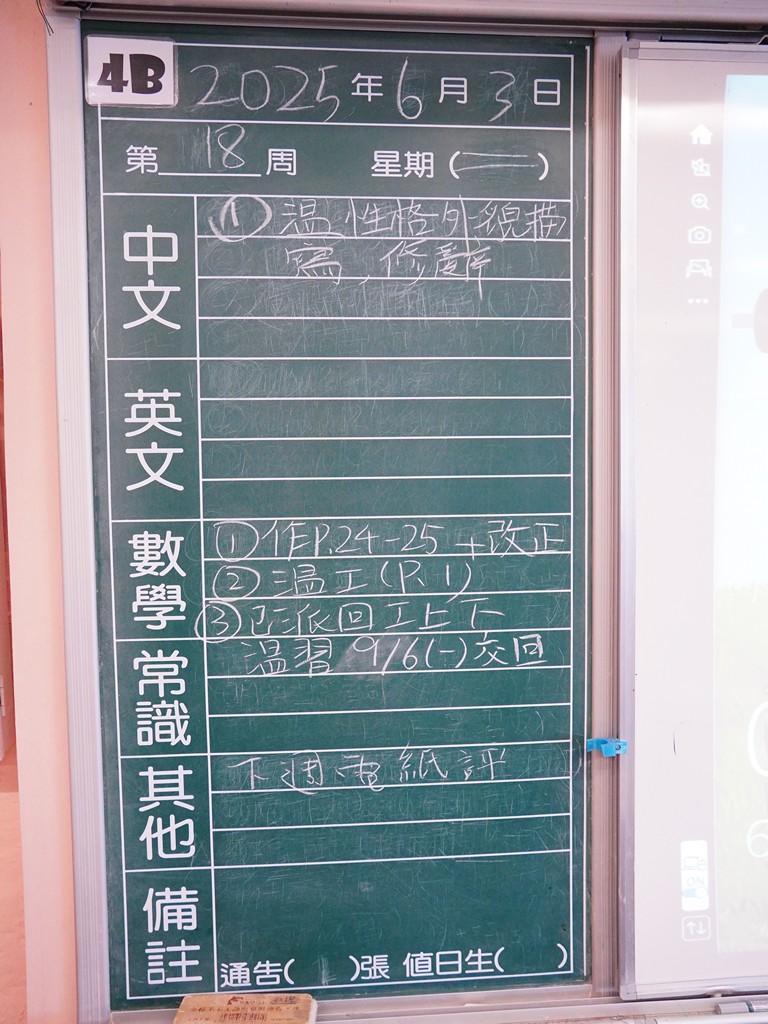 4B 2025年6月3日
第18周 星期(二)
中文
①温性格外貌描
寫,修辭
英文
數學
①作P.24-25+改正
②温工(P.1)
③已派回工上下
温習 9/6(一)交回
常識
其他
下週電紙評
備註
通告( )張 值日生( )